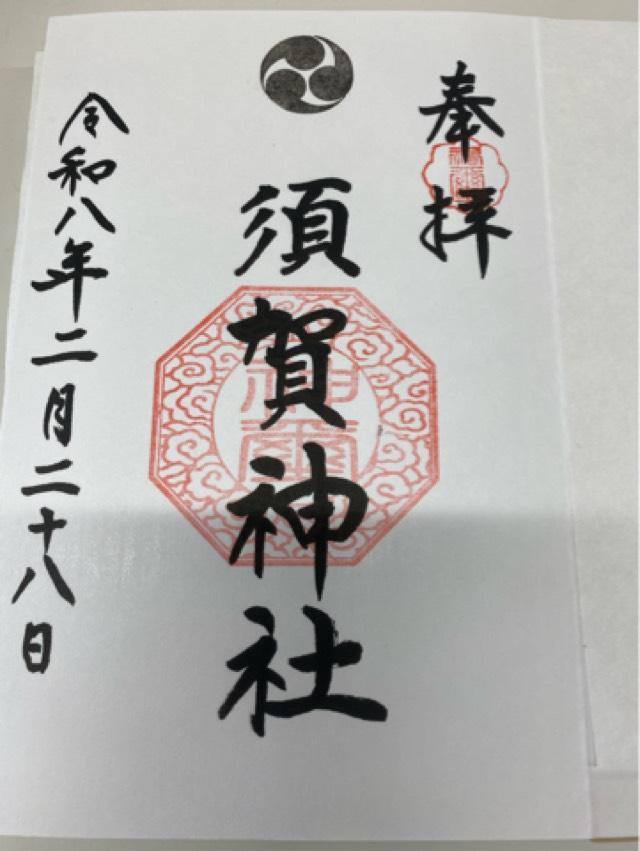 奉拝
須賀神社
令和八年二月二十八日